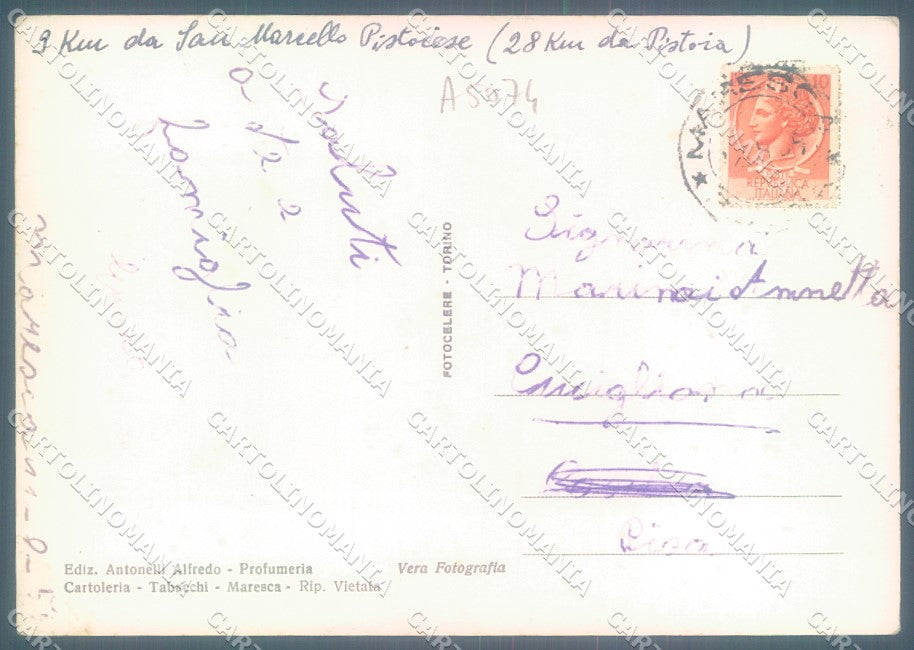 9 Km da San Marcello Pistoiese (28 Km da Pistoia)
A5974
Saluti
a
famiglia
FOTOCELERE - TORINO
MARESCA
10
REPUBBLICA
ITALIANA
Signorina
Annetta
Pisa
Ediz. Antonelli Alfredo - Profumeria
Cartoleria - Tabacchi - Maresca - Rip. Vietata
Vera Fotografia
CARTOLINOMANIA